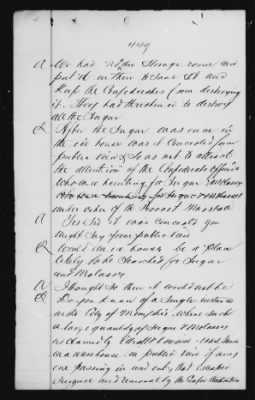 449
A We had no other Storage room and
put it in there to save it and
keep the Confederates from destroying
it. They had threatened to destroy
all the Sugar
Q After the Sugar was once in
the ice house was it concealed from
public view & so as not to attract
the attention of the Confederate officers
who were hunting for Sugar & Molasses
under orders of the Provost Marshal
A Yes Sir it was concealed you
might say from public view
Q Would an ice house be a place
likely to be searched for Sugar
and Molasses
A I thought so then it would not be
Q Do you know of a single instance
in the City of Memphis where such
a large quantity of Sugar & Molasses
as claimed by Elliott & was stored
in a warehouse in public view of any
one passing in and out, that escaped
seizure and removal by the Confed. Authorities